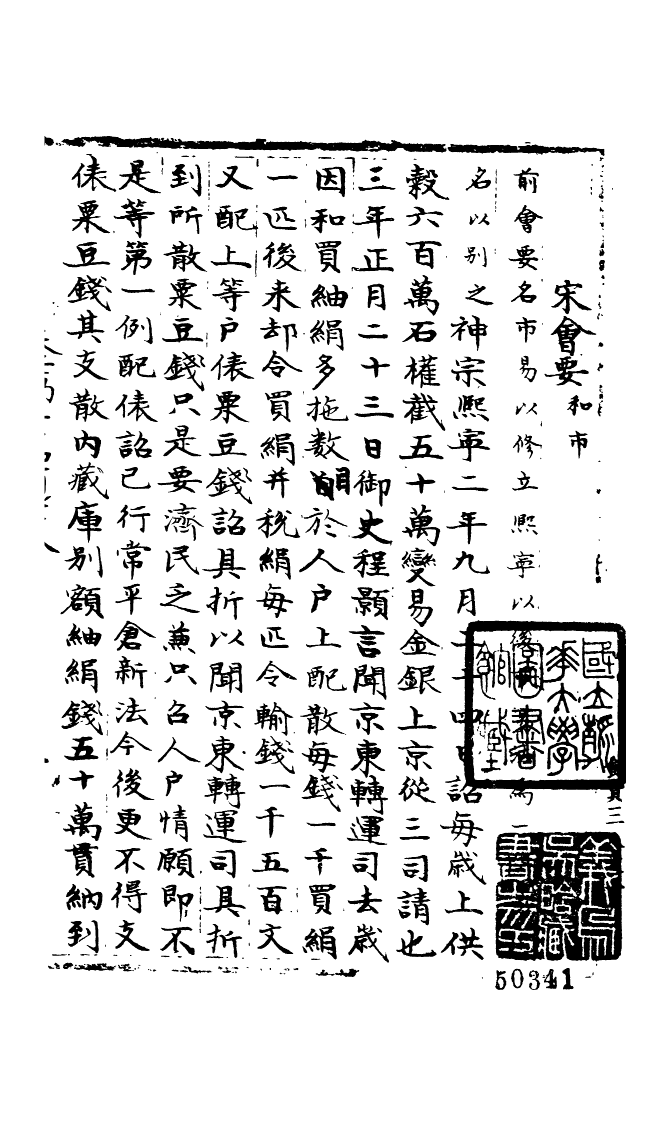 宋會要
和市
前會要名市易以修立熙寧以後
爲一
名以别之神宗熙寧二年九月二十四日詔每歳上供
穀六百萬石權截五十萬變易金銀上京從三司請也
三年正月二十三日御史程顥言聞京東轉運司去歳
因和買紬絹多拖數目於人户上配散每錢一千買絹
一匹後来却令買絹并税絹每匹令輸錢一千五百文
又配上等户俵粟豆錢詔具折以聞京東轉運司具折
到所散粟豆錢只是要濟民乏兼只召人户情願即不
是等第一例配俵詔已行常平倉新法今後更不得支
俵粟豆錢其支散内藏庫别額紬絹錢五十萬貫納到
國立清華大學圖書館藏
50341